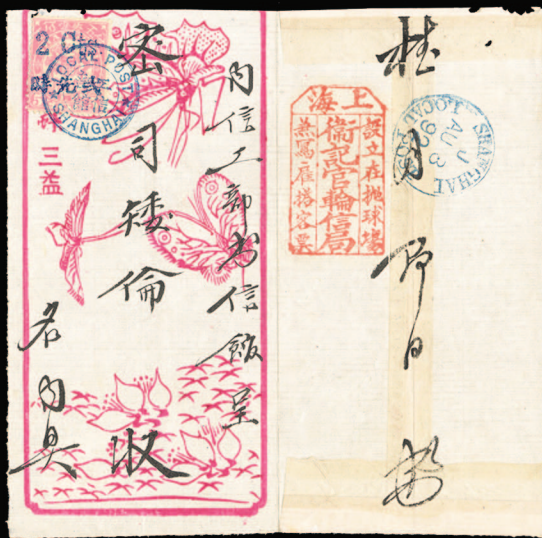 2 Cts.
時先弍
LOCAL POST
SHANGHAI
三益
內信工部書信館呈
密司矮倫 收
名內具
上海
設立在拋球塲
衛記官輪信局
兼寫雇搭客票
SHANGHAI
LOCAL POST
AU 3
92
桂月 日